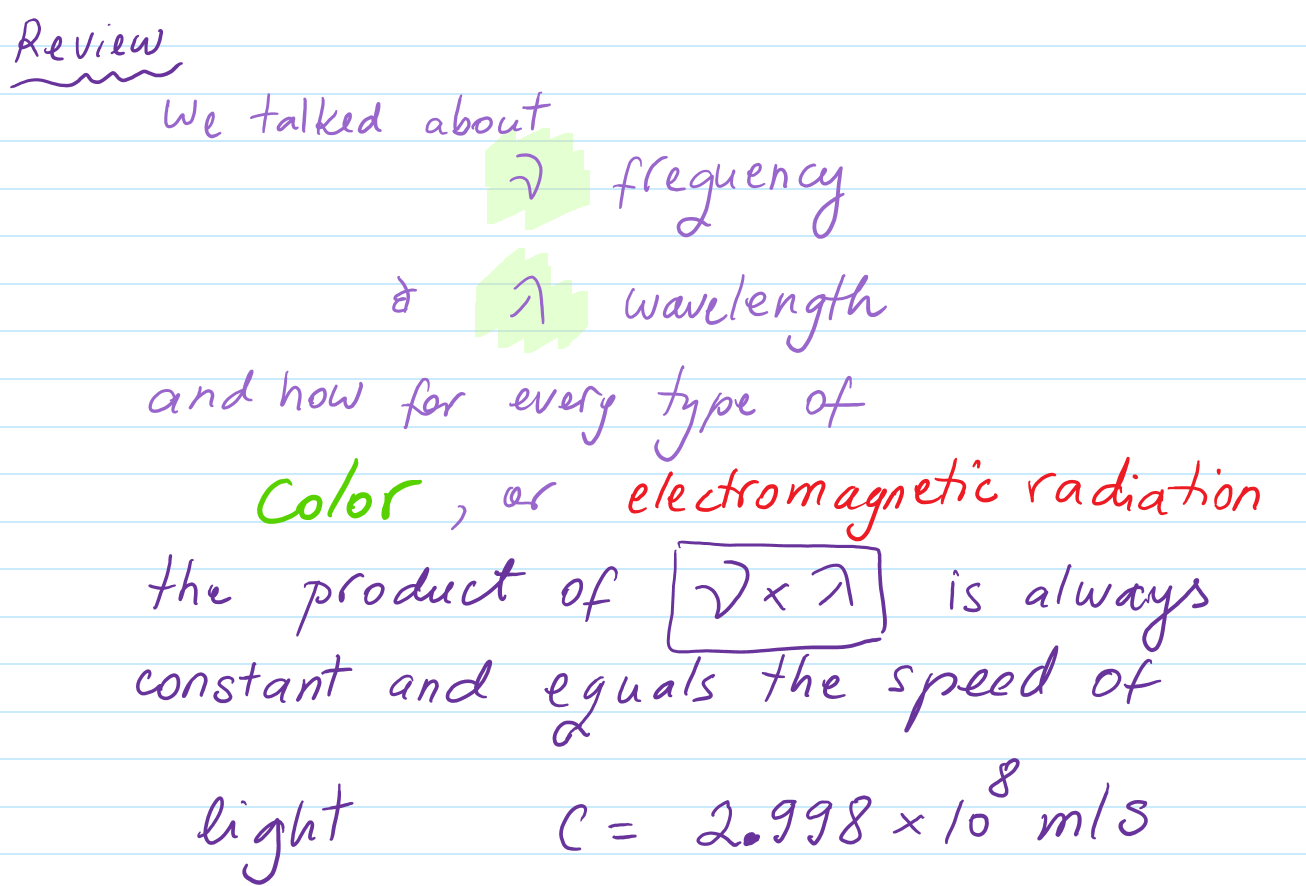 Review
We talked about
ν frequency
& λ wavelength
and how for every type of
color, or electromagnetic radiation
the product of ν × λ is always
constant and equals the speed of
light C = 2.998 × 10⁸ m/s